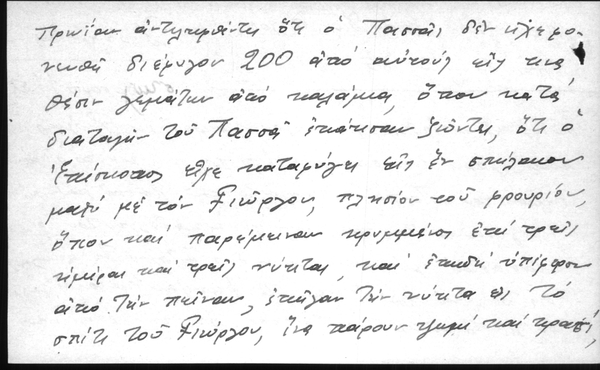 πρωΐαν ἀντιληφθέντες ὅτι ὁ Πασσᾶς δὲν εἶχε μο-
νωθῆ διέφυγον 200 ἀπό αὐτούς εἰς τινα
θέσιν γεμάτην ἀπό καλάμια, ὅπου κατά
διαταγήν τοῦ Πασσᾶ ἐκάησαν ζῶντες, ὅτι ὁ
Ἐπίσκοπος εἶχε καταφύγει εἰς ἕν σπήλαιον
μαζύ μὲ τόν Γιῶργον, πλησίον τοῦ φρουρίου,
ὅπου καί παρέμειναν κρυμμένοι ἐπί τρεῖς
ἡμέρας καί τρεῖς νύκτας, καί ἐπειδή ὑπέφερον
ἀπό τήν πεῖναν, ἐπῆγαν τήν νύκτα εἰς τό
σπίτι τοῦ Γιώργου, ἵνα πάρουν ψωμί καί κρασί,